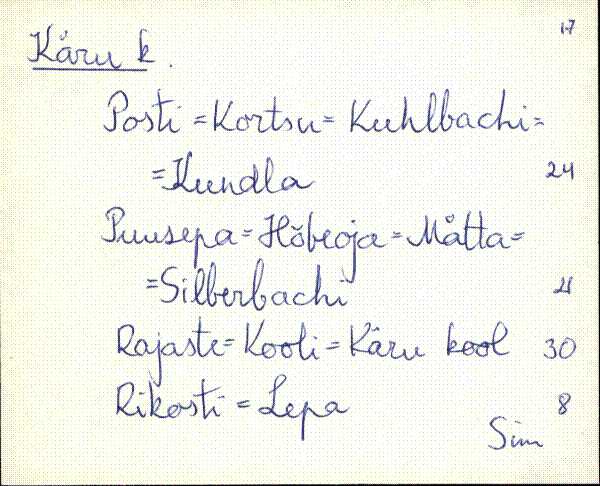 17
Käru k.
Posti = Kortsu = Kuhlbachi =
= Kundla 24
Puusepa = Hõbeoja = Mätta =
= Silberbachi 21
Rajaste = Kooli = Käru kool 30
Rikosti = Lepa 8
Sim